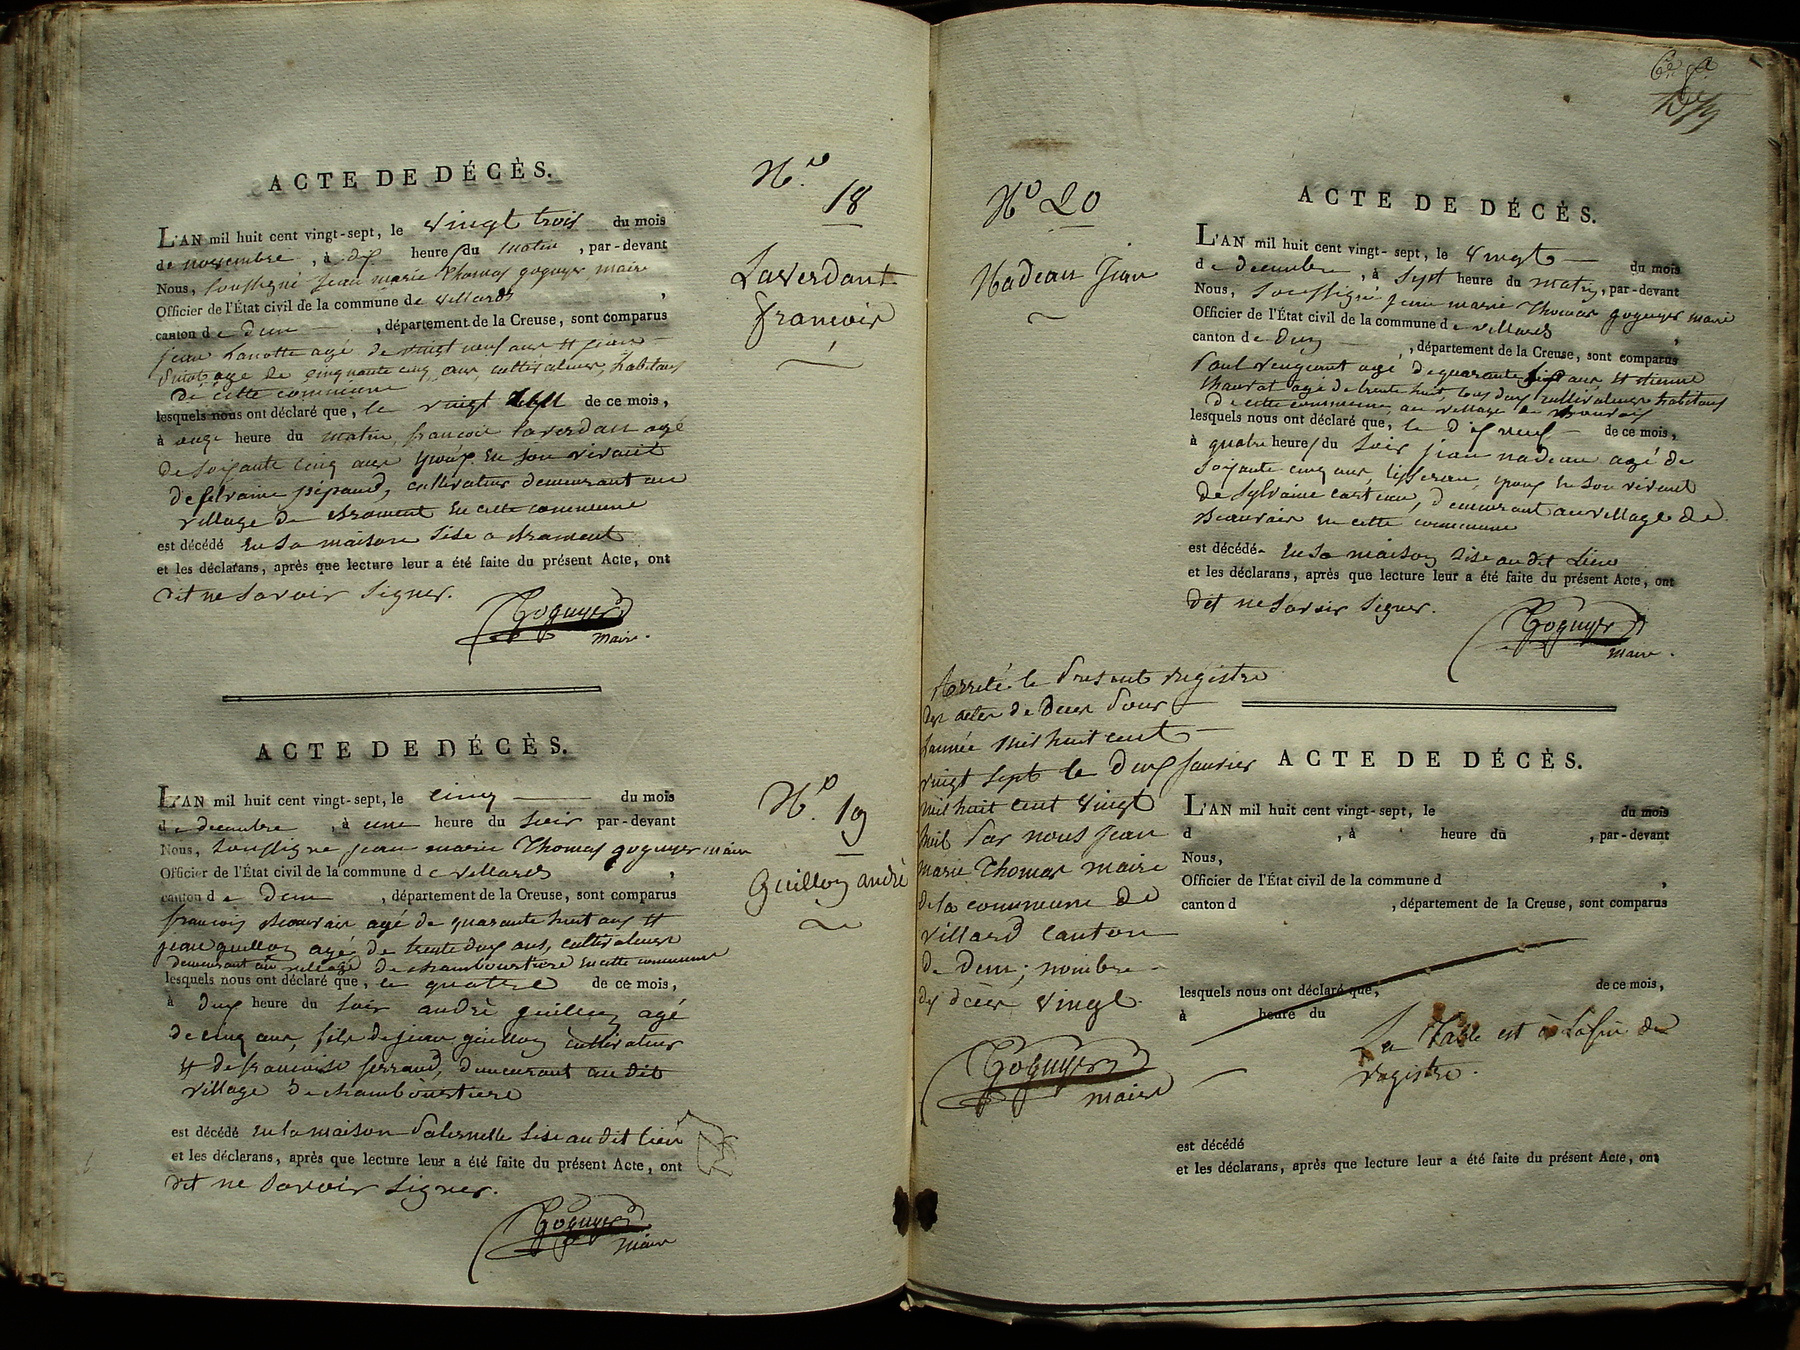 ACTE DE DÉCÈS.
L'AN mil huit cent vingt-sept, le vingt trois du mois
de novembre, à dix heure du matin, par-devant
Nous, soussigné jean marie Thomas goguyer maire
Officier de l'État civil de la commune de villards,
canton de dun, département de la Creuse, sont comparus
jean Lanotte agé de vingt neuf ans et jean
agé de cinquante cinq ans, cultivateurs, habitans
de cette commune
lesquels nous ont déclaré que, le vingt de ce mois,
à onze heure du matin, francois laverdan agé
de soixante cinq ans époux en son vivant
de silvaine pépaud, cultivateur demeurant au
village de en cette commune
est décédé en sa maison sise a
et les déclarans, après que lecture leur a été faite du présent Acte, ont
dit ne savoir signer.
Goguyer
maire.
N.º
18
Laverdant
francois
ACTE DE DÉCÈS.
L'AN mil huit cent vingt-sept, le cinq du mois
de decembre, à une heure du soir par-devant
Nous, soussigné jean marie Thomas goguyer maire
Officier de l'État civil de la commune de villards,
canton de Dun, département de la Creuse, sont comparus
francois Beauvais agé de quarante huit ans et
jean guillon agé de trente deux ans, cultivateurs
demeurant au village de chambourstiere en cette commune
lesquels nous ont déclaré que, le quatre de ce mois,
à deux heure du soir andré guillon agé
de cinq ans, fils de jean guillon cultivateur
et de francoise ferrand, demeurant au dit
village de chambourstiere
est décédé en la maison paternelle sise au dit lieu
et les déclarans, après que lecture leur a été faite du présent Acte, ont
dit ne savoir signer.
Goguyer
maire
N.º 19
Guillon andré
Nº 20
Nadeau Jean
ACTE DE DÉCÈS.
L'AN mil huit cent vingt-sept, le vingt du mois
de decembre, à sept heure du matin, par-devant
Nous, soussigné jean marie Thomas goguyer maire
Officier de l'État civil de la commune de villards,
canton de dun, département de la Creuse, sont comparus
Paul agé de quarante ans, et étienne
chauvat agé de trente huit, tous deux cultivateurs habitans
de cette commune, au village de
lesquels nous ont déclaré que, le dix neuf de ce mois,
à quatre heures du soir jean nadeau agé de
soixante cinq ans, tisseran, époux en son vivant
de sylvaine carteau, demeurant au village de
Beauvais en cette commune
est décédé en sa maison sise au dit lieu
et les déclarans, après que lecture leur a été faite du présent Acte, ont
dit ne savoir signer.
Goguyer
maire.
Arreté le present registre
des actes de deces pour
l'année mil huit cent
vingt sept le deux janvier
mil huit cent vingt
huit par nous jean
marie Thomas maire
de la commune de
villard canton
de Dun; nombre
des décès vingt.
Goguyer
maire
ACTE DE DÉCÈS.
L'AN mil huit cent vingt-sept, le du mois
d , à heure du , par-devant
Nous,
Officier de l'État civil de la commune d ,
canton d , département de la Creuse, sont comparus
lesquels nous ont déclaré que, de ce mois,
à heure du
La Table est à la fin du
registre.
est décédé
et les déclarans, après que lecture leur a été faite du présent Acte, ont